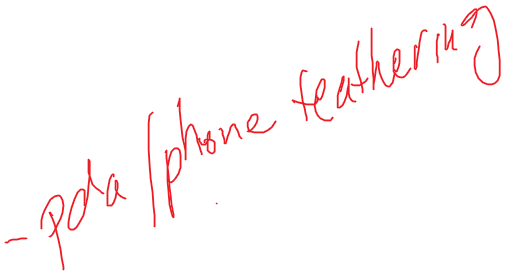 - pda /phone teathering